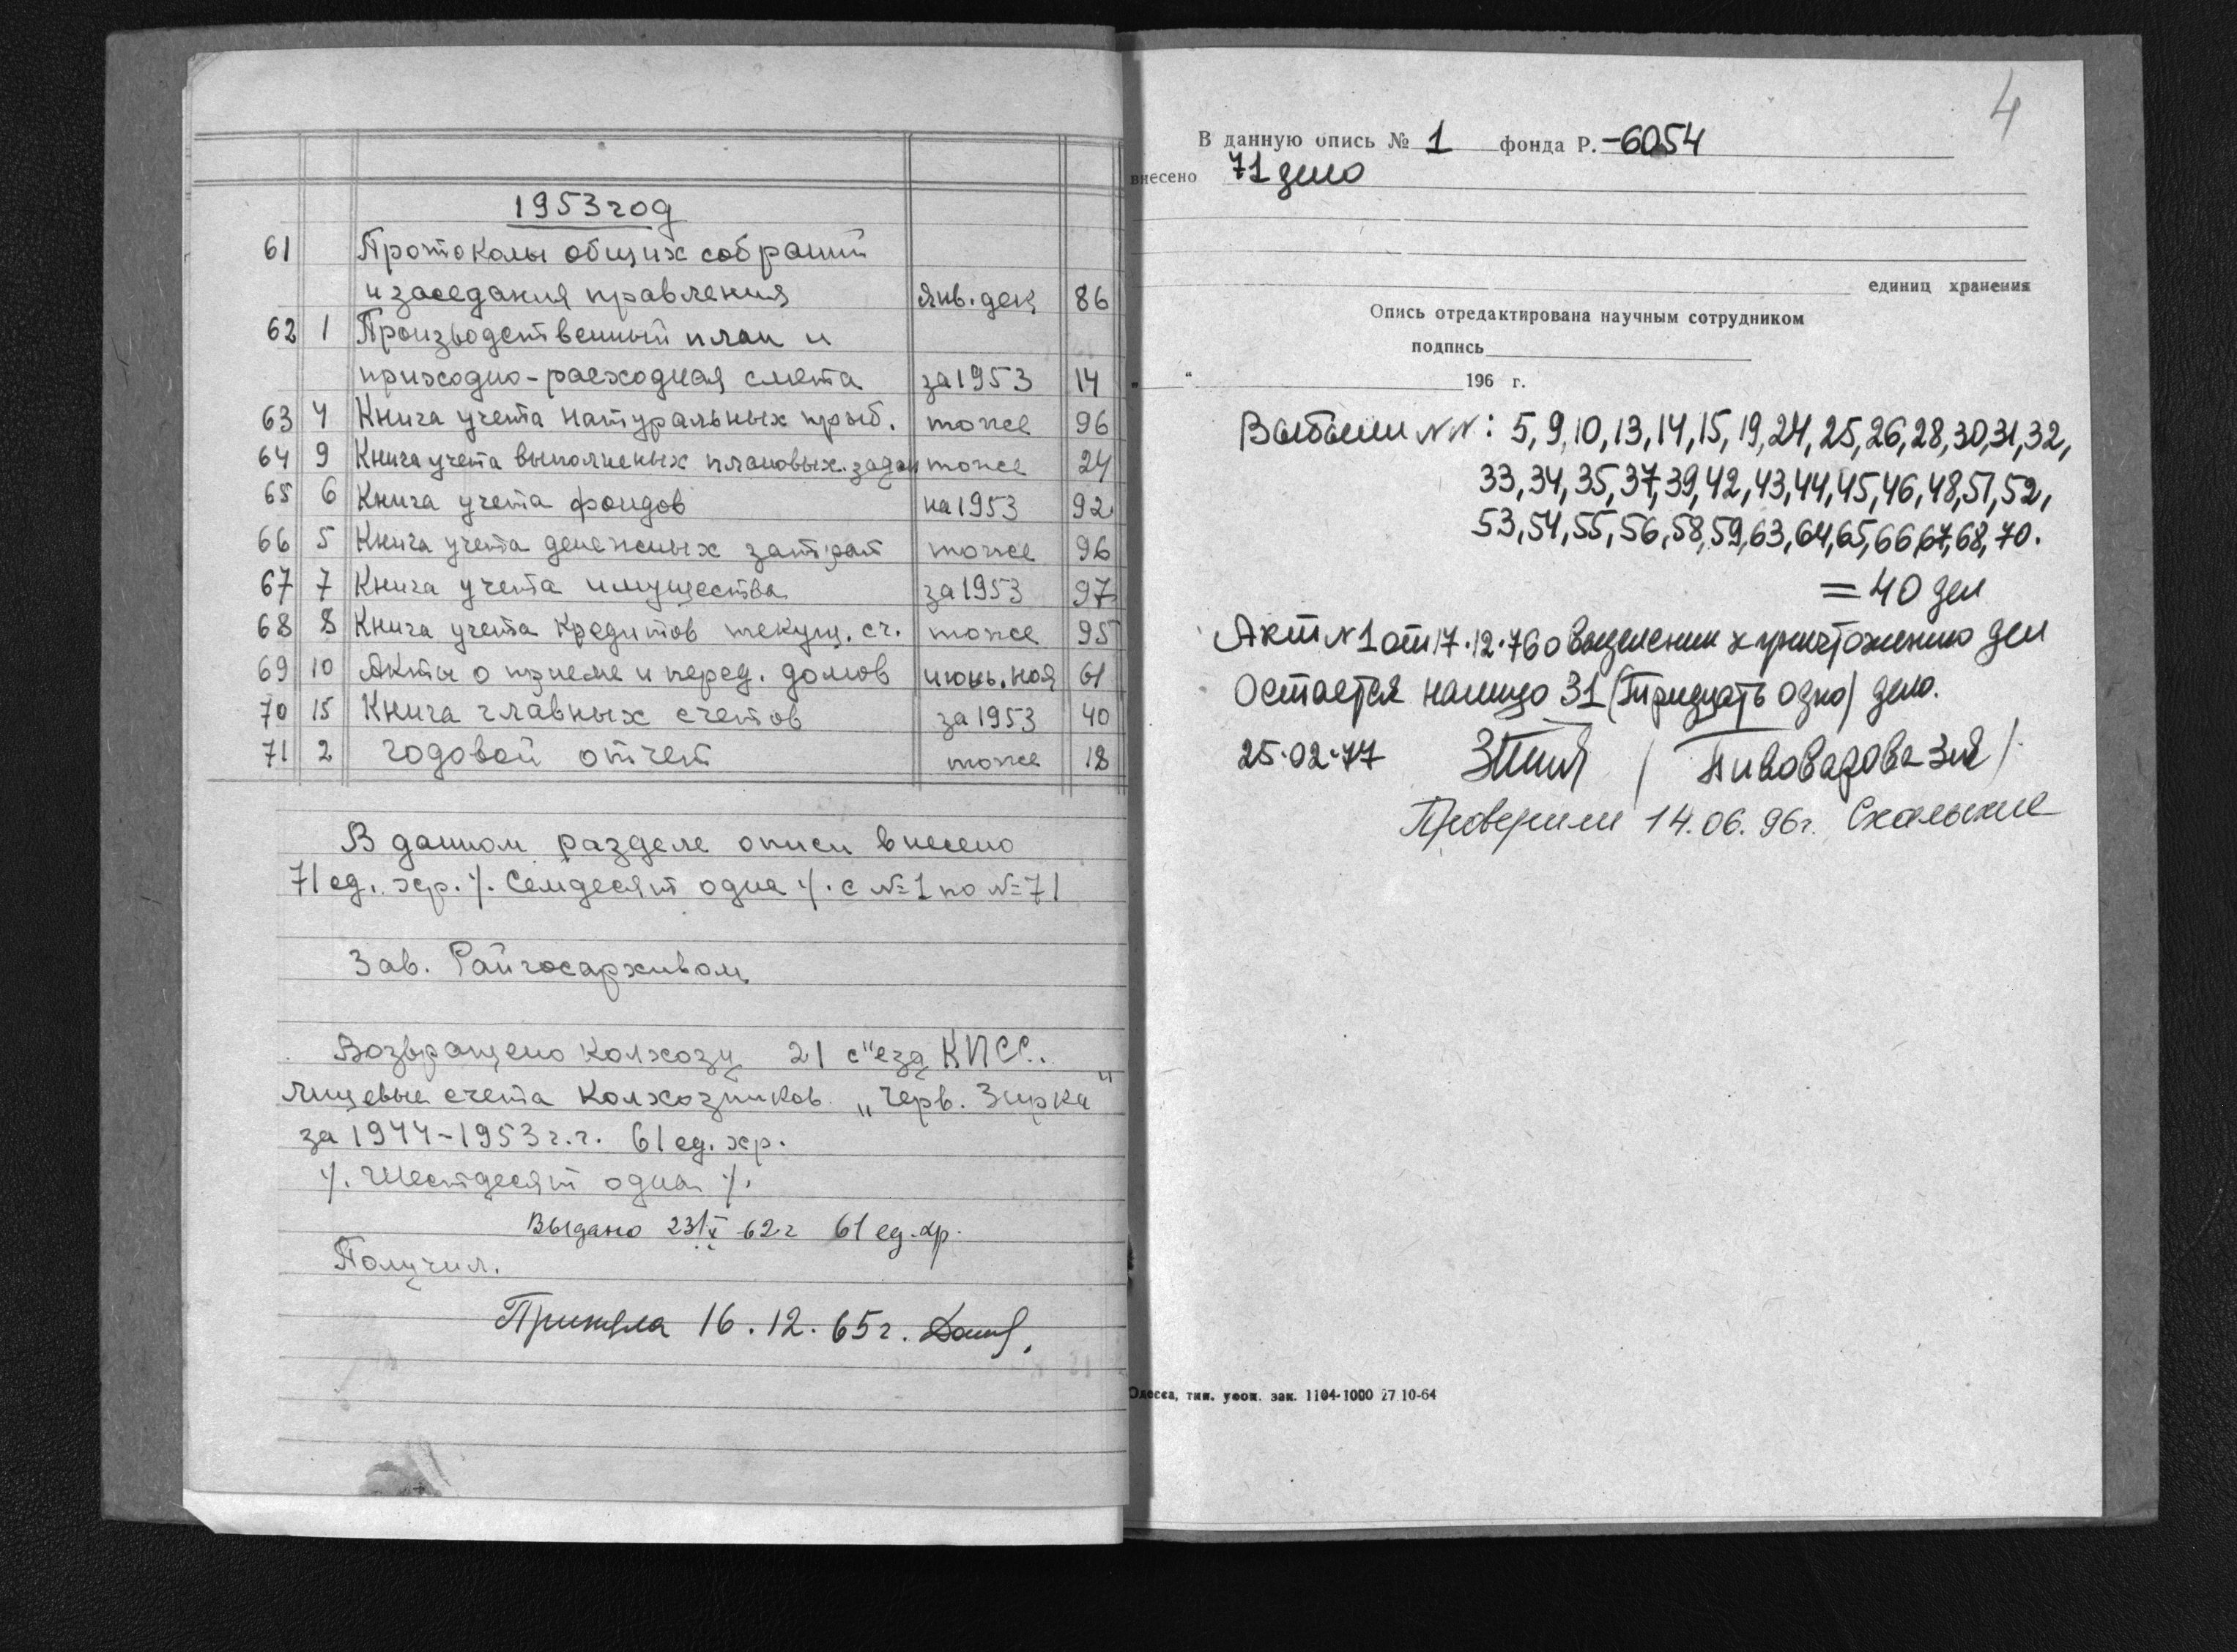 1953 год
61 Протоколы общих собраний
и заседания правления янв. дек 86
62 1 Производственный план и
приходно-расходная смета за 1953 14
63 4 Книга учета натуральных приб. тоже 96
64 9 Книга учета выполненых плановых. задан тоже 24
65 6 Книга учета фондов на 1953 92
66 5 Книга учета денежных затрат тоже 96
67 7 Книга учета имущества за 1953 97
68 8 Книга учета кредитов текущ. сч. тоже 95
69 10 Акты о приеме и перед. домов июнь. ноя 61
70 15 Книга главных счетов за 1953 40
71 2 годовой отчет тоже 18
В данном разделе описи внесено
71 ед. хр. /. Семдесят одна /. с №1 по №71
Зав. Райгосархивом
Возвращено колхозу 21 с"езд КПСС.
лицевые счета колхозников „Черв. Зирка"
за 1944-1953 г.г. 61 ед. хр.
/. Шестдесят одна /.
Выдано 23/X 62 г 61 ед. хр.
Получил.
Приняла 16.12.65 г.
4
В данную опись № 1 фонда Р.-6054
внесено 71 дело
единиц хранения
Опись отредактирована научным сотрудником
подпись
„ “ 196 г.
Выбыли NN: 5, 9, 10, 13, 14, 15, 19, 24, 25, 26, 28, 30, 31, 32,
33, 34, 35, 37, 39, 42, 43, 44, 45, 46, 48, 51, 52,
53, 54, 55, 56, 58, 59, 63, 64, 65, 66, 67, 68, 70.
= 40 дел
Акт N1 от 17.12.76 о выделении к уничтожению дел
Остается налицо 31 (тридцать одно) дело.
25.02.77 / Пивоварова /
Проверили 14.06.96 г.
Одесса, тип. упол. зак. 1104-1000 27 10-64